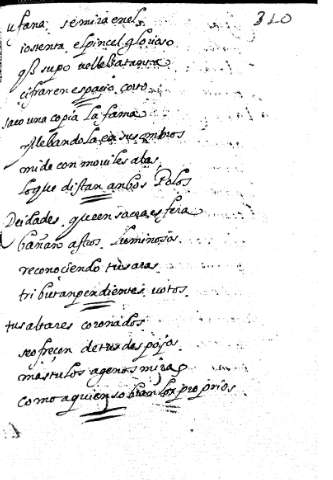 320
ufana se mira en el
iostenta el pincel glorioso
qe supo
cifrar en espacio corto
saco una copia la fama
y llebandola en sus ombros
mide con mobiles alas
lo que distan anbos Polos
Deidades que en sacra esfera
bañan astros luminosos
reconociendo tus aras
tributan pendientes votos
tus altares coronados
se ofrecen de tus despojos
mas tulos agenos miras
como a quien sobran los proprios